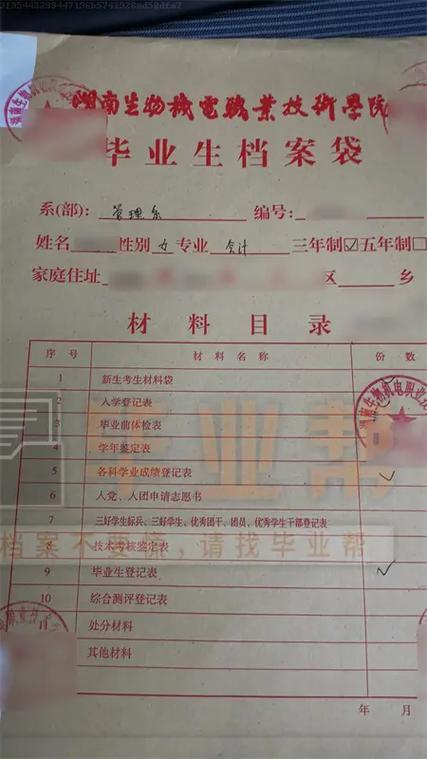 湖南生物機電職業技術學院
毕业生档案袋
系(部): 管理系 编号:
姓名 性别 女 专业 会计 三年制☑五年制☐
家庭住址 区 乡
材料目录
序号 材料名称 份数
1 新生考生材料袋
2 入学登记表
3 毕业前体检表
4 学年鉴定表
5 各科学业成绩登记表 ✓
6 入党、入团申请志愿书
7 三好学生标兵、三好学生、优秀团干、团员、优秀学生干部登记表
8 技术考核鉴定表
9 毕业生登记表 ✓
10 综合测评登记表
11 处分材料
其他材料
年 月
毕业帮
档案不要慌,请找毕业帮